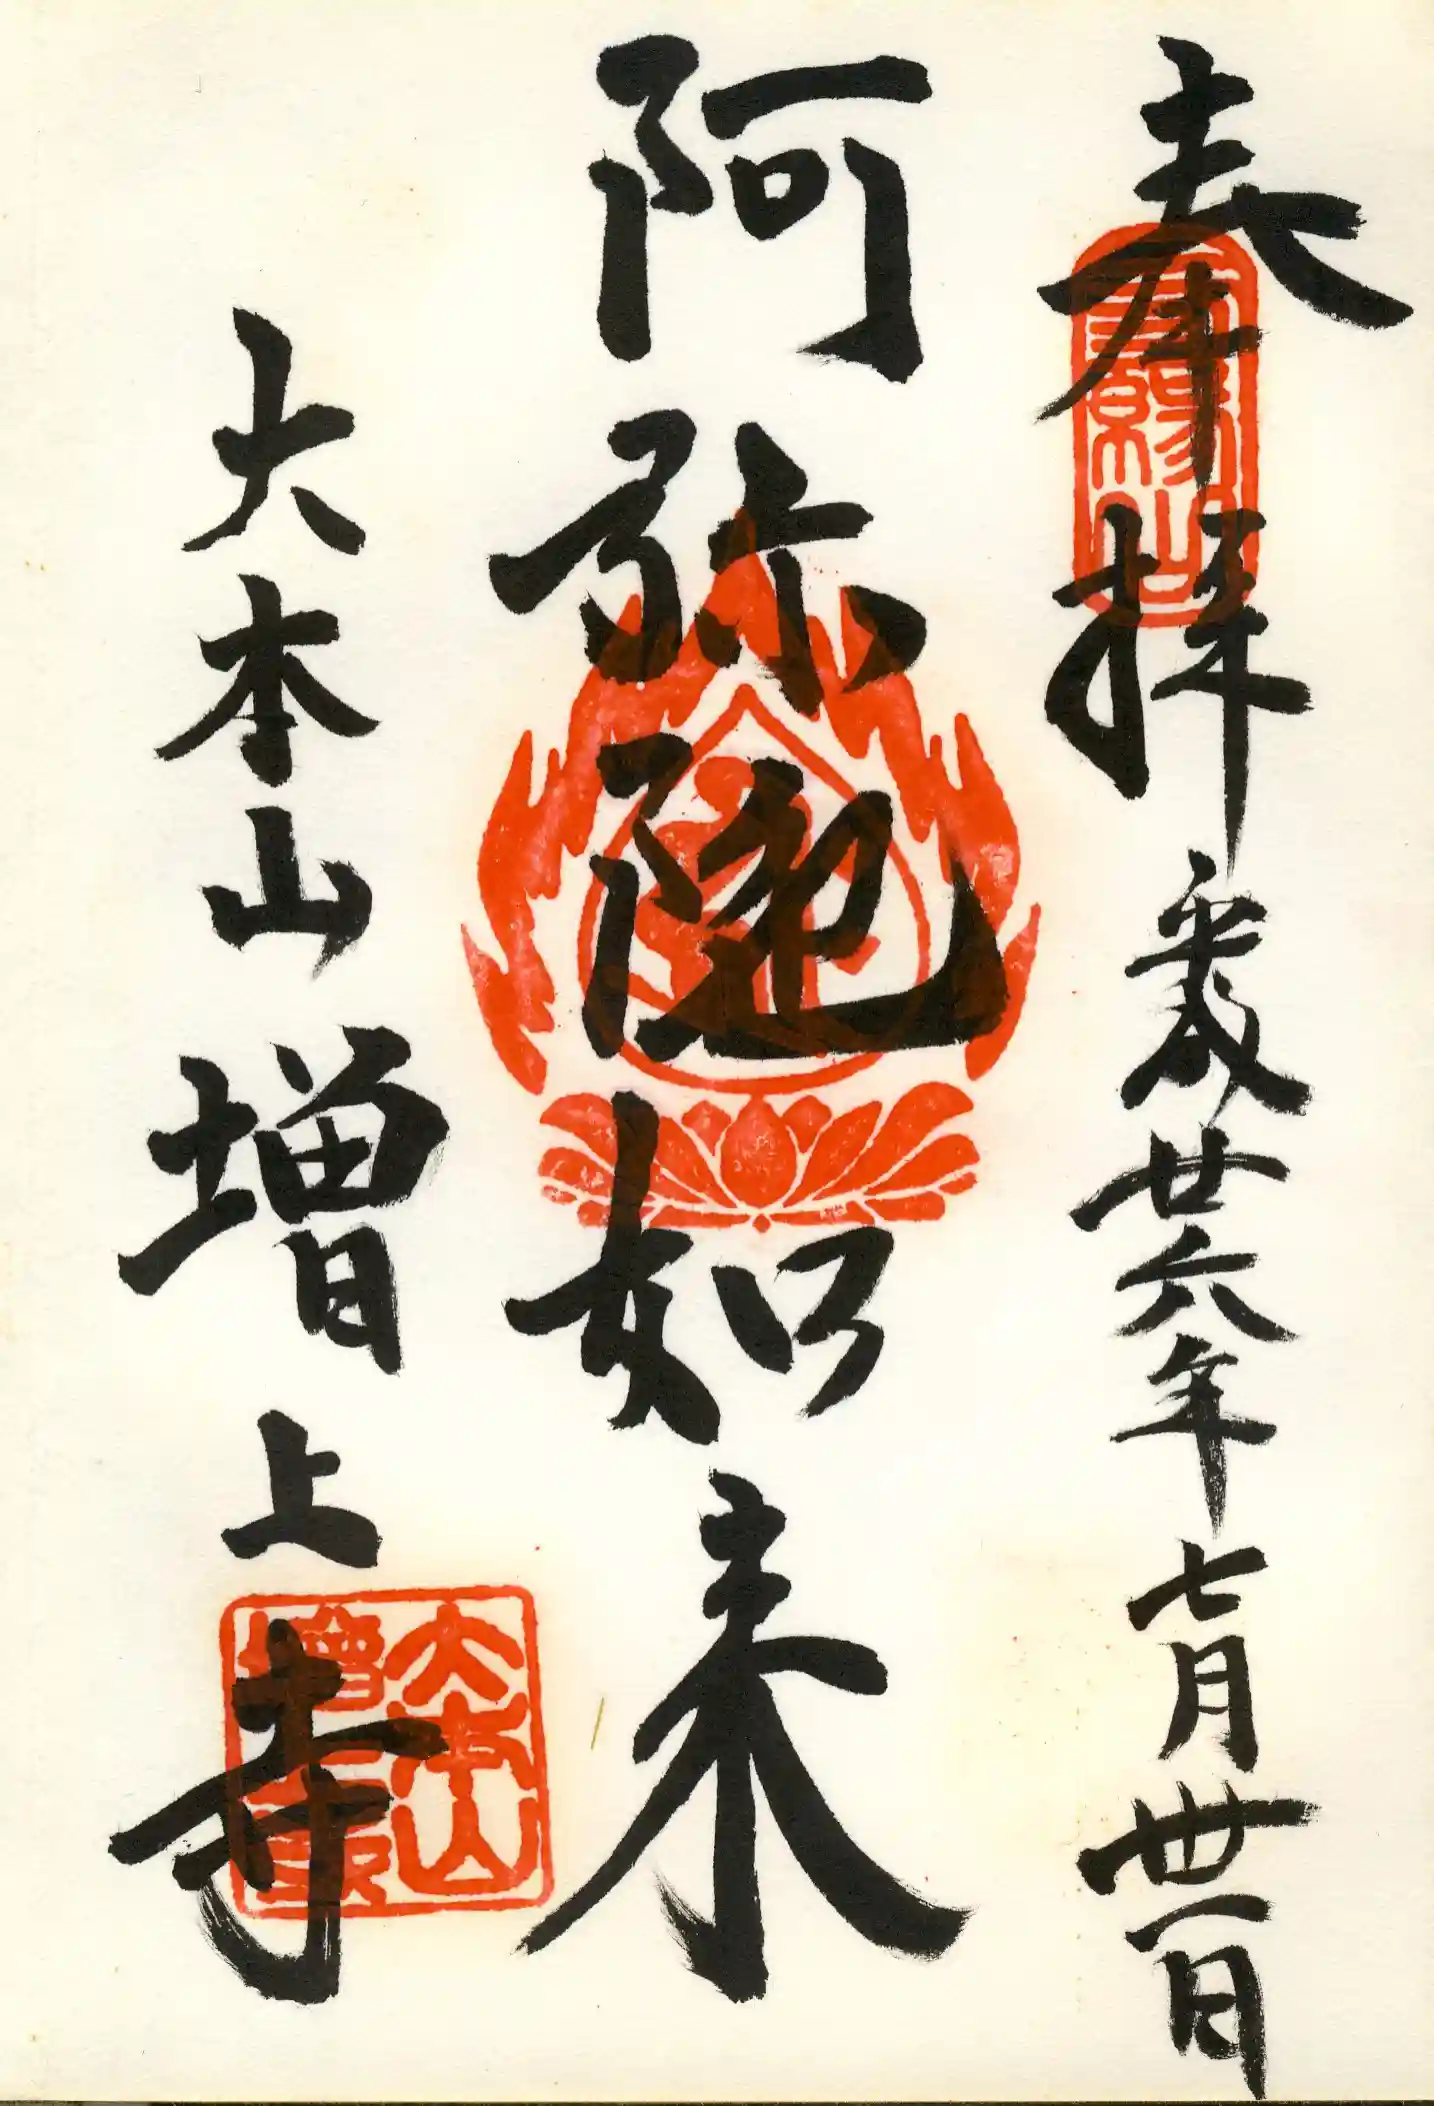 奉拝 平成廿六年七月卅一日
阿弥陀如来
大本山増上寺
三縁山
大本山
増上寺